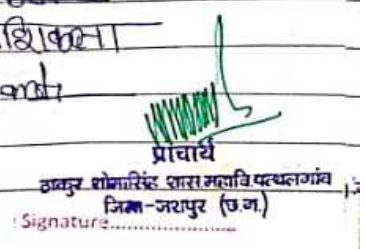 प्राचार्य
ठाकुर शोभासिंह शास.महावि.पत्थलगांव
जिला-जशपुर (छ.ग.)
Signature....................